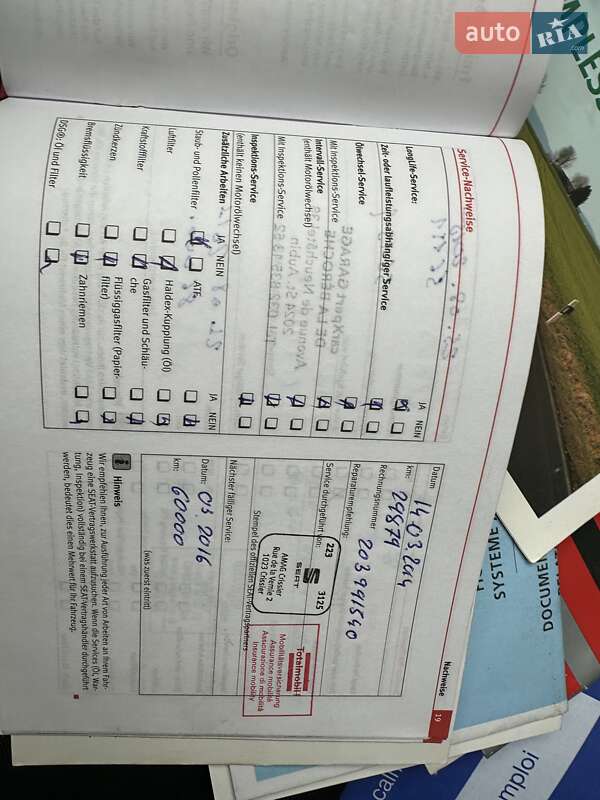 auto RIA.com
Nachweise
19
Service-Nachweise
JA NEIN
LongLife-Service:
Zeit- oder laufleistungsabhängiger Service
Ölwechsel-Service
Mit Inspektions-Service
Intervall-Service
(enthält Motorölwechsel)
Mit Inspektions-Service
Inspektions-Service
(enthält keinen Motorölwechsel)
Zusätzliche Arbeiten
JA NEIN
JA NEIN
Staub- und Pollenfilter
Luftfilter
Kraftstofffilter
Zündkerzen
Bremsflüssigkeit
DSG®; Öl und Filter
ATF
Haldex-Kupplung (Öl)
Gasfilter und Schläu-
che
Flüssiggasfilter (Papier-
filter)
Zahnriemen
Datum
14.03.2014
km:
29879
Rechnungsnummer
203991540
Reparaturempfehlung:
Service durchgeführt von:
223 3125
SEAT
AMAG Crissier
Rue de la Vernie 2
1023 Crissier
Totalmobil!
Mobilitätsversicherung
Assurance mobilité
Assicurazione di mobilità
Insurance mobility
Stempel des offiziellen SEAT-Vertragspartners
Nächster fälliger Service:
Datum: 03 2016
km: 60000
(was zuerst eintritt)
Hinweis
Wir empfehlen Ihnen, zur Ausführung jeder Art von Arbeiten an Ihrem Fahr-
zeug eine SEAT-Vertragswerkstatt aufzusuchen. Wenn die Services (Öl, War-
tung, Inspektion) vollständig bei einem SEAT-Vertragshändler durchgeführt
werden, bedeutet dies einen Mehrwert für Ihr Fahrzeug.
SYSTEME
DOCUMEN
mploi